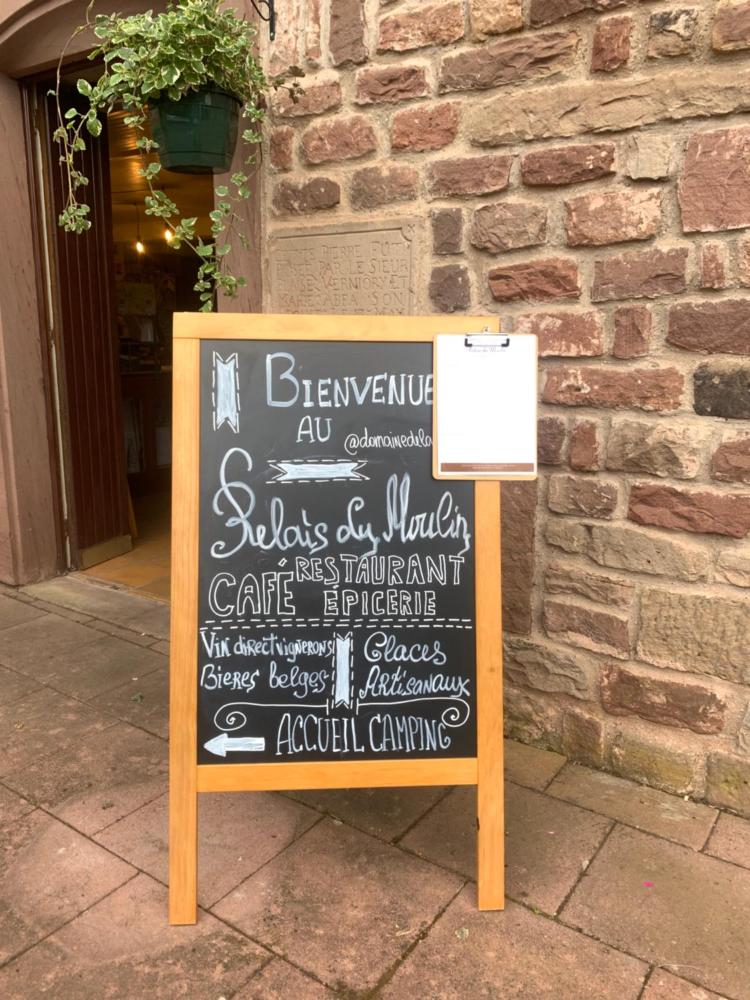 PIERRE FUT
PAR LE SIEUR
VERNIORY ET
SON
BIENVENUE
AU
@domainedela
Relais du Moulin
CAFÉ RESTAURANT
ÉPICERIE
Vin direct vignerons
Bieres belges
Glaces
Artisanaux
ACCUEIL CAMPING